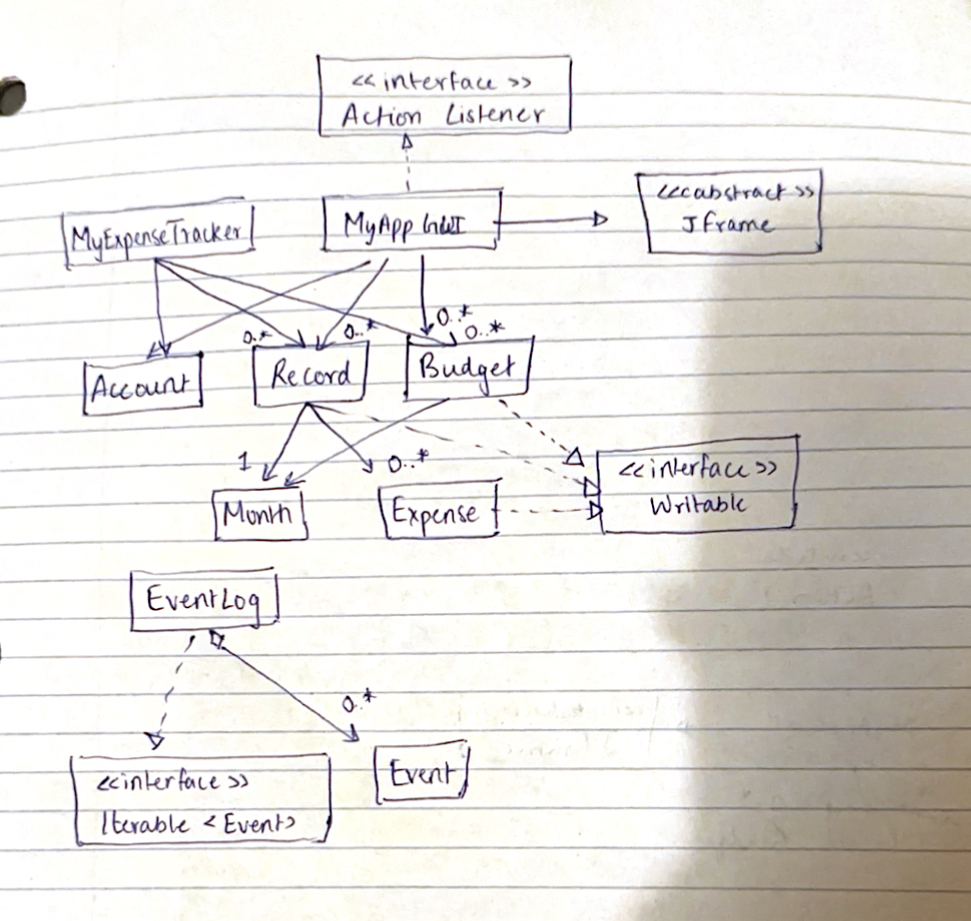 <<interface>>
Action Listener
MyExpenseTracker
MyApp GUI
<<abstract>>
Jframe
0..*
0..*
0..*
0..*
Account
Record
Budget
1
0..*
<<interface>>
Writable
Month
Expense
EventLog
0..*
<<interface>>
Iterable <Event>
Event